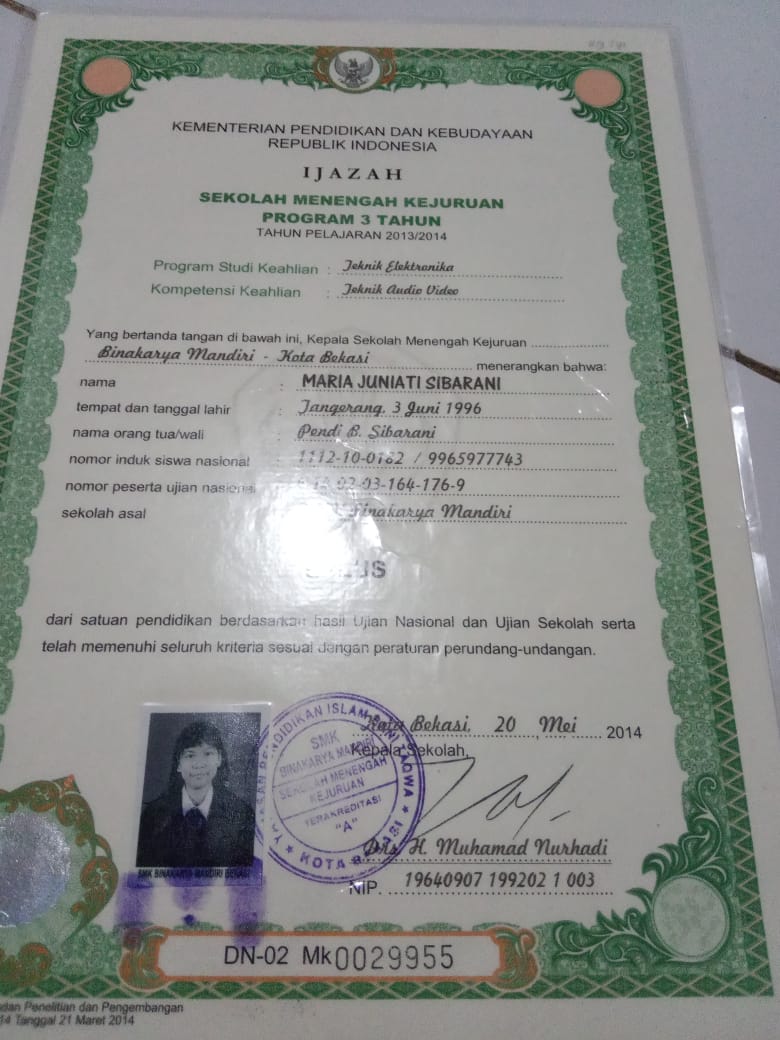 KEMENTERIAN PENDIDIKAN DAN KEBUDAYAAN
REPUBLIK INDONESIA
IJAZAH
SEKOLAH MENENGAH KEJURUAN
PROGRAM 3 TAHUN
TAHUN PELAJARAN 2013/2014
Program Studi Keahlian : Teknik Elektronika
Kompetensi Keahlian : Teknik Audio Video
Yang bertanda tangan di bawah ini, Kepala Sekolah Menengah Kejuruan
Binakarya Mandiri - Kota Bekasi menerangkan bahwa:
nama : MARIA JUNIATI SIBARANI
tempat dan tanggal lahir : Tangerang, 3 Juni 1996
nama orang tua/wali : Pendi B. Sibarani
nomor induk siswa nasional : 1112-10-0162 / 9965977743
nomor peserta ujian nasional 03-164-176-9
sekolah asal : Binakarya Mandiri
dari satuan pendidikan berdasarkan hasil Ujian Nasional dan Ujian Sekolah serta
telah memenuhi seluruh kriteria sesuai dengan peraturan perundang-undangan.
Kota Bekasi, 20 Mei 2014
Kepala Sekolah,
SMK
BINAKARYA MANDIRI
SEKOLAH MENENGAH
KEJURUAN
TERAKREDITASI
"A"
KOTA BEKASI
Drs. H. Muhamad Nurhadi
NIP. 19640907 199202 1 003
SMK BINAKARYA MANDIRI BEKASI
DN-02 Mk 0029955
dan Penelitian dan Pengembangan
14 Tanggal 21 Maret 2014